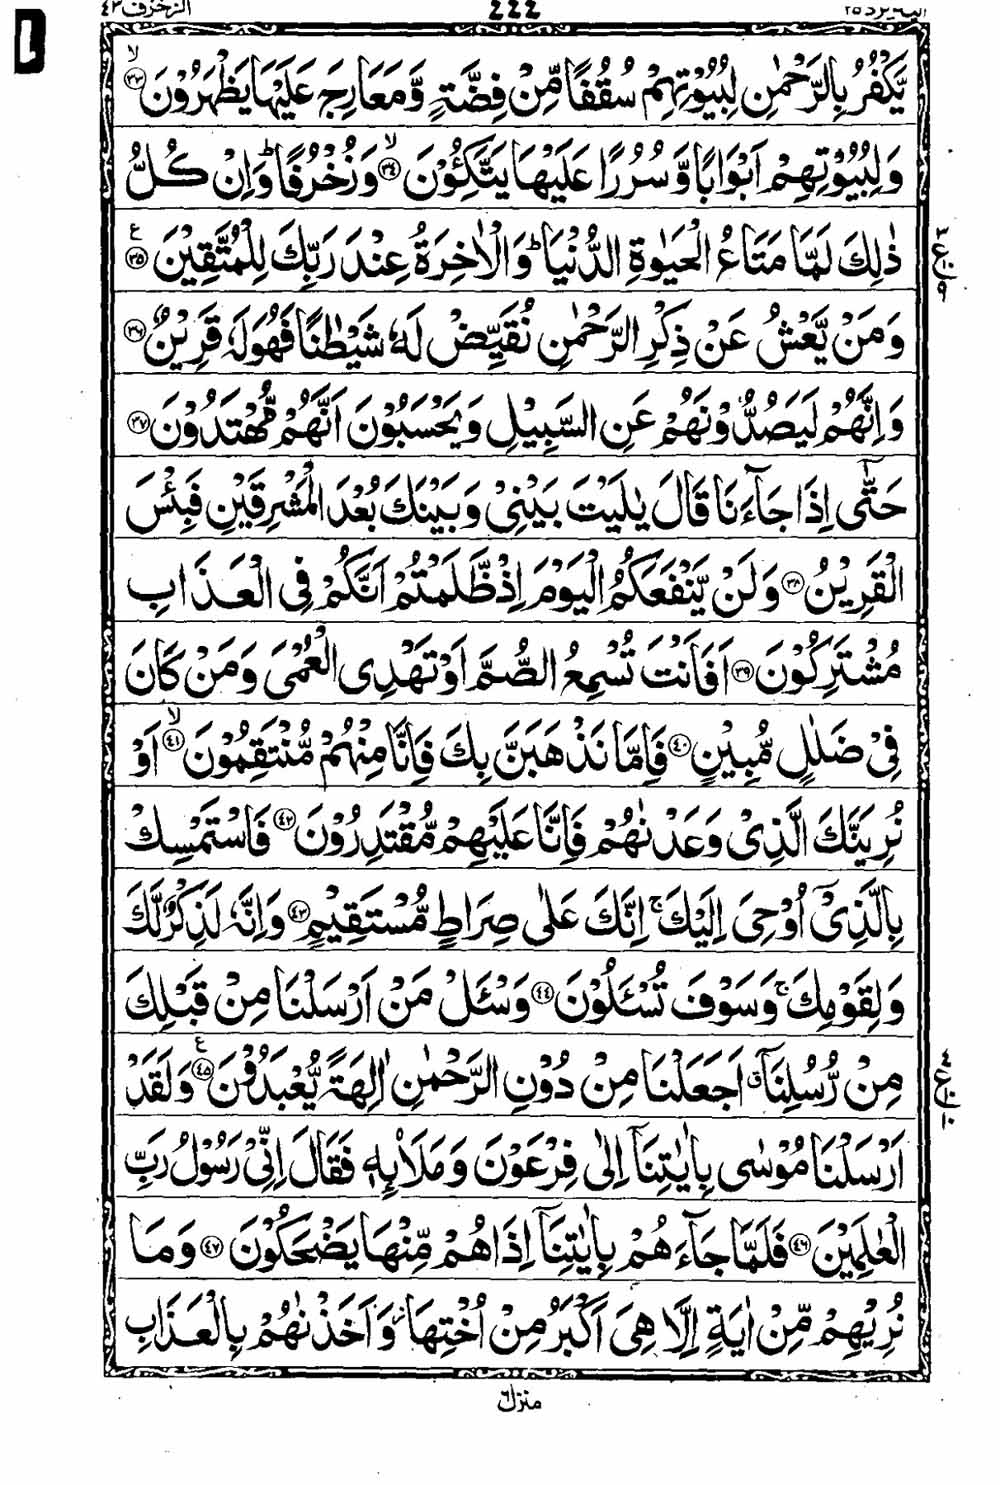 الزخرف ٤٣ 444 اليه يرد ٢٥
يَّكْفُرُ بِالرَّحْمٰنِ لِبُيُوْتِهِمْ سُقُفًا مِّنْ فِضَّةٍ وَّمَعَارِجَ عَلَيْهَا يَظْهَرُوْنَ ﴿٣٣﴾ۙ
وَلِبُيُوْتِهِمْ اَبْوَابًا وَّسُرُرًا عَلَيْهَا يَتَّكِئُوْنَ ﴿٣٤﴾ۙ وَزُخْرُفًا ؕ وَاِنْ كُلُّ
ذٰلِكَ لَمَّا مَتَاعُ الْحَيٰوةِ الدُّنْيَا ؕ وَالْاٰخِرَةُ عِنْدَ رَبِّكَ لِلْمُتَّقِيْنَ ﴿٣٥﴾ ع
وَمَنْ يَّعْشُ عَنْ ذِكْرِ الرَّحْمٰنِ نُقَيِّضْ لَهٗ شَيْطٰنًا فَهُوَ لَهٗ قَرِيْنٌ ﴿٣٦﴾
وَاِنَّهُمْ لَيَصُدُّوْنَهُمْ عَنِ السَّبِيْلِ وَيَحْسَبُوْنَ اَنَّهُمْ مُّهْتَدُوْنَ ﴿٣٧﴾
حَتّٰٓى اِذَا جَآءَنَا قَالَ يٰلَيْتَ بَيْنِيْ وَبَيْنَكَ بُعْدَ الْمَشْرِقَيْنِ فَبِئْسَ
الْقَرِيْنُ ﴿٣٨﴾ وَلَنْ يَّنْفَعَكُمُ الْيَوْمَ اِذْ ظَّلَمْتُمْ اَنَّكُمْ فِي الْعَذَابِ
مُشْتَرِكُوْنَ ﴿٣٩﴾ اَفَاَنْتَ تُسْمِعُ الصُّمَّ اَوْ تَهْدِى الْعُمْيَ وَمَنْ كَانَ
فِيْ ضَلٰلٍ مُّبِيْنٍ ﴿٤٠﴾ فَاِمَّا نَذْهَبَنَّ بِكَ فَاِنَّا مِنْهُمْ مُّنْتَقِمُوْنَ ﴿٤١﴾ۙ اَوْ
نُرِيَنَّكَ الَّذِيْ وَعَدْنٰهُمْ فَاِنَّا عَلَيْهِمْ مُّقْتَدِرُوْنَ ﴿٤٢﴾ فَاسْتَمْسِكْ
بِالَّذِيْٓ اُوْحِيَ اِلَيْكَ ۚ اِنَّكَ عَلٰى صِرَاطٍ مُّسْتَقِيْمٍ ﴿٤٣﴾ وَاِنَّهٗ لَذِكْرٌ لَّكَ
وَلِقَوْمِكَ ۚ وَسَوْفَ تُسْئَلُوْنَ ﴿٤٤﴾ وَسْئَلْ مَنْ اَرْسَلْنَا مِنْ قَبْلِكَ
مِنْ رُّسُلِنَآ ۖ اَجَعَلْنَا مِنْ دُوْنِ الرَّحْمٰنِ اٰلِهَةً يُّعْبَدُوْنَ ﴿٤٥﴾ ع وَلَقَدْ
اَرْسَلْنَا مُوْسٰى بِاٰيٰتِنَآ اِلٰى فِرْعَوْنَ وَمَلَا۟ئِهٖ فَقَالَ اِنِّيْ رَسُوْلُ رَبِّ
الْعٰلَمِيْنَ ﴿٤٦﴾ فَلَمَّا جَآءَهُمْ بِاٰيٰتِنَآ اِذَا هُمْ مِّنْهَا يَضْحَكُوْنَ ﴿٤٧﴾ وَمَا
نُرِيْهِمْ مِّنْ اٰيَةٍ اِلَّا هِيَ اَكْبَرُ مِنْ اُخْتِهَا ۡ وَاَخَذْنٰهُمْ بِالْعَذَابِ
منزل ٦